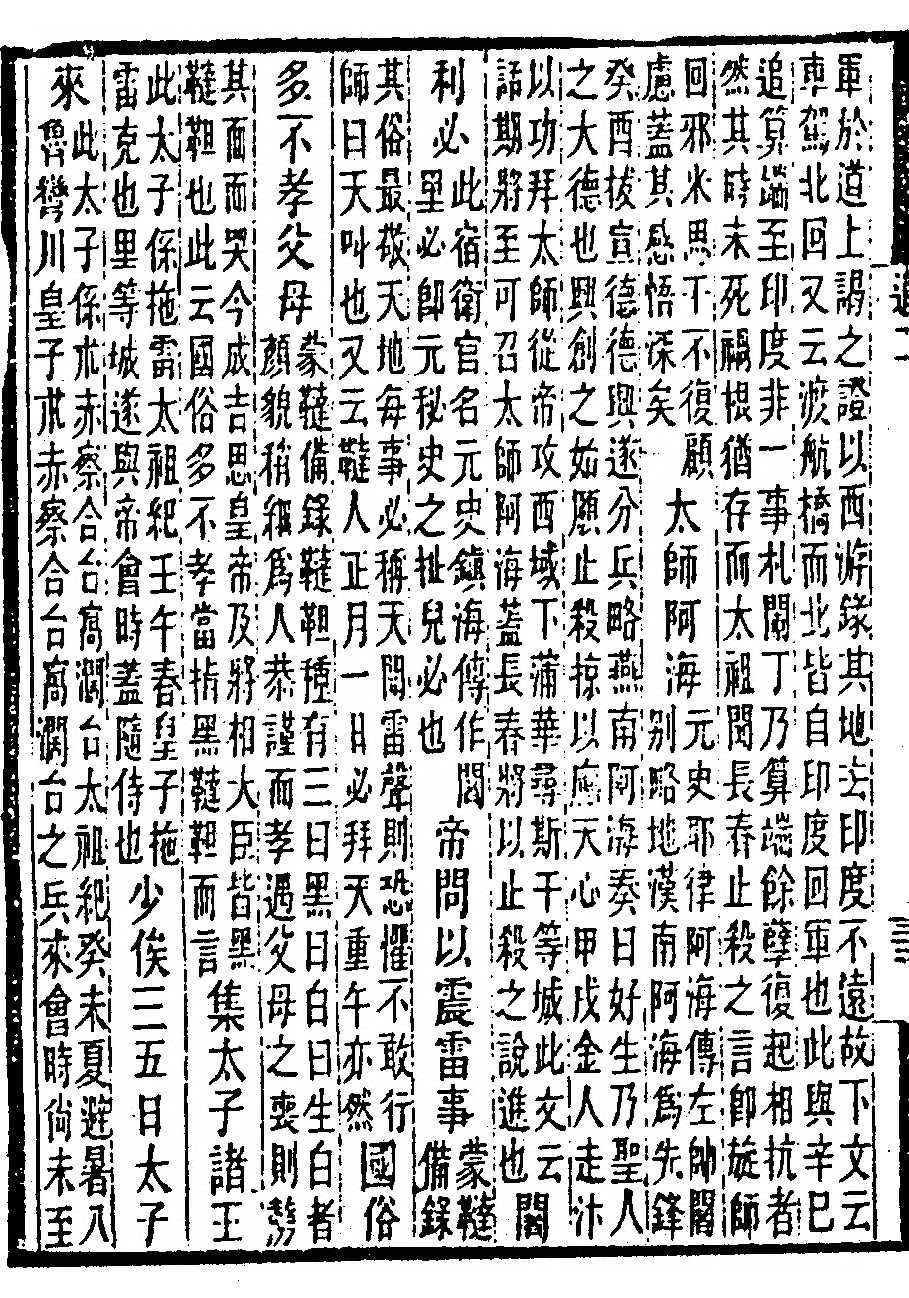 軍於道上謁之證以西游錄其地去印度不遠故下文云
車駕北回又云渡航橋而北皆自印度回軍也此與辛巳
追算端至印度非一事札闌丁乃算端餘孽復起相抗者
然其時未死禍根猶存而太祖聞長春止殺之言即旋師
回邪米思干不復顧
慮蓋其感悟深矣
太師阿海
元史耶律阿海傳左帥闍
別略地漢南阿海爲先鋒
癸酉拔宣德德興遂分兵略燕南阿海奏曰好生乃聖人
之大德也興創之始願止殺掠以應天心甲戌金人走汴
以功拜太師從帝攻西域下蒲華尋斯干等城此文云
話期將至可召太師阿海蓋長春將以止殺之說進也
闍
利必
此宿衛官名元史鎮海傳作闍
里必即元秘史之扯兒必也
帝問以震雷事
蒙韃
備錄
其俗最敬天地每事必稱天聞雷聲則恐懼不敢行
師曰天叫也又云韃人正月一日必拜天重午亦然
國俗
多不孝父母
蒙韃備錄韃靼種有三曰黑曰白曰生白者
顏貌稍細爲人恭謹而孝遇父母之喪則剺
其面而哭今成吉思皇帝及將相大臣皆黑
韃靼也此云國俗多不孝當指黑韃靼而言
集太子諸王
此太子係拖雷太祖紀壬午春皇子拖
雷克也里等城遂與帝會時蓋隨侍也
少俟三五日太子
來
此太子係朮赤察合台窩濶台太祖紀癸未夏避暑八
魯彎川皇子朮赤察合台窩濶台之兵來會時尚未至